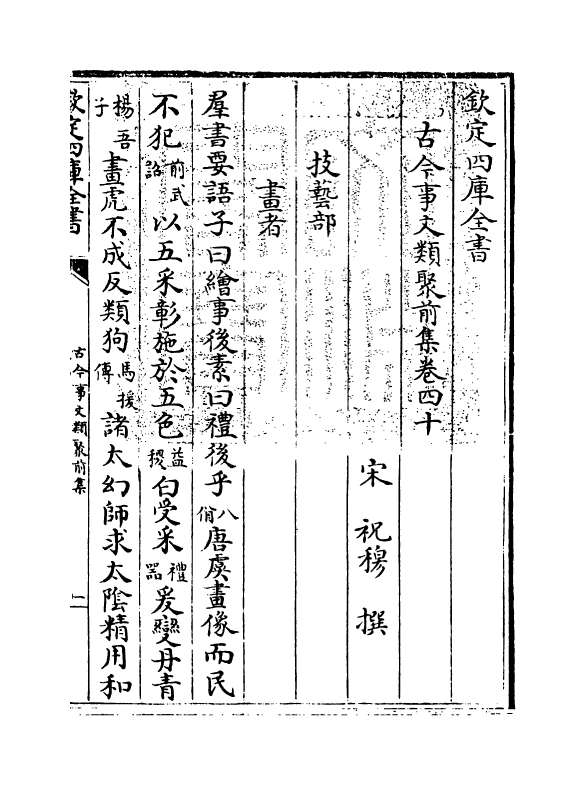 欽定四庫全書
古今事文類聚前集卷四十
宋 祝穆 撰
技藝部
畫者
羣書要語子曰繪事後素曰禮後乎八佾唐虞畫像而民
不犯前武詔以五采彰施於五色益稷白受采禮器爰變丹青
楊吾子畫虎不成反類狗馬援傳諸太幻師求太陰精用和
欽定四庫全書 古今事文類聚前集 一